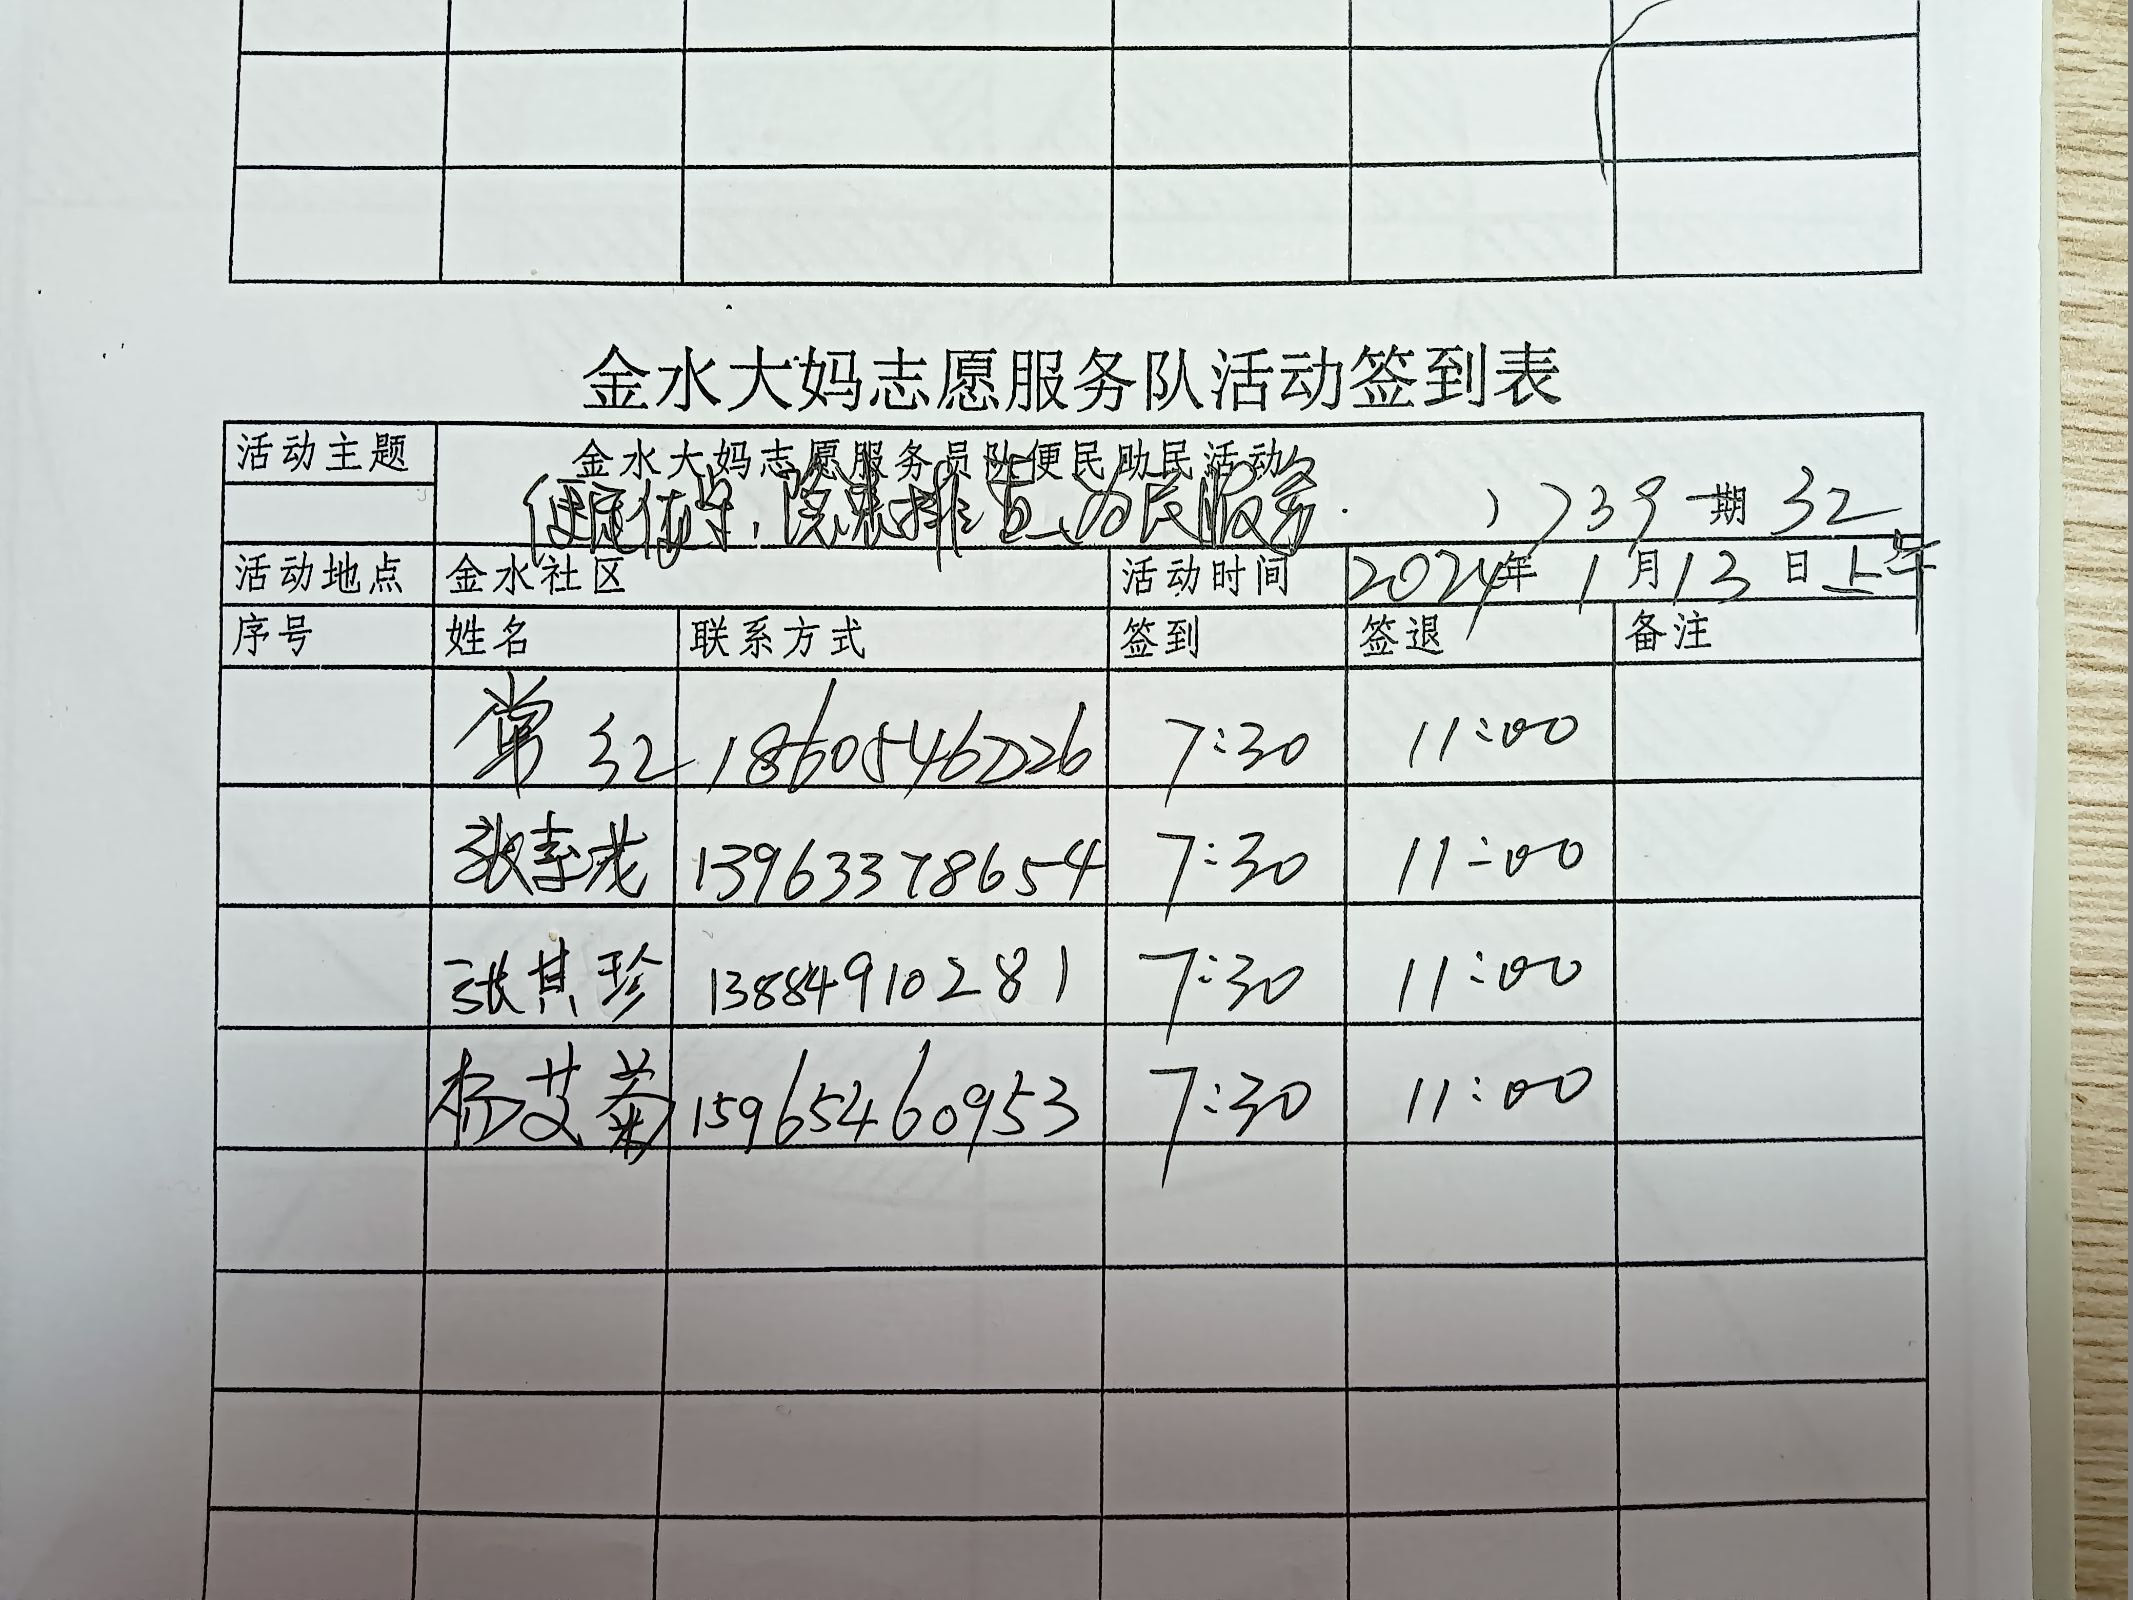 金水大妈志愿服务队活动签到表
活动主题 金水大妈志愿服务员队便民助民活动
隐患排查、为民服务. 1739 期 32
活动地点 金水社区 活动时间 2024年 1月13日上午
序号 姓名 联系方式 签到 签退 备注
常红 18605467226 7:30 11:00
张素 13963378654 7:30 11:00
张其珍 13884910281 7:30 11:00
杨艾菊 15965460953 7:30 11:00